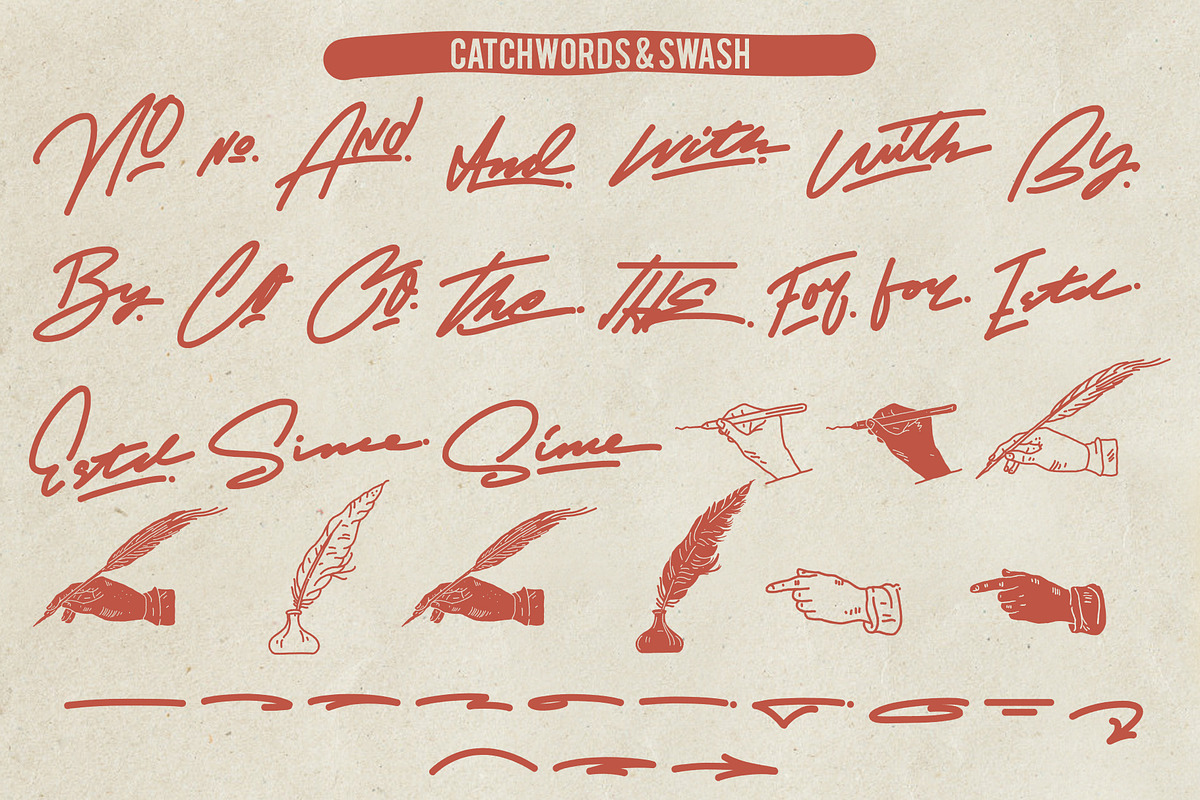 CATCHWORDS & SWASH
No No. And And. With. With By.
By. Co Co. The. THE. For. for. Estd.
Estd. Since. Since